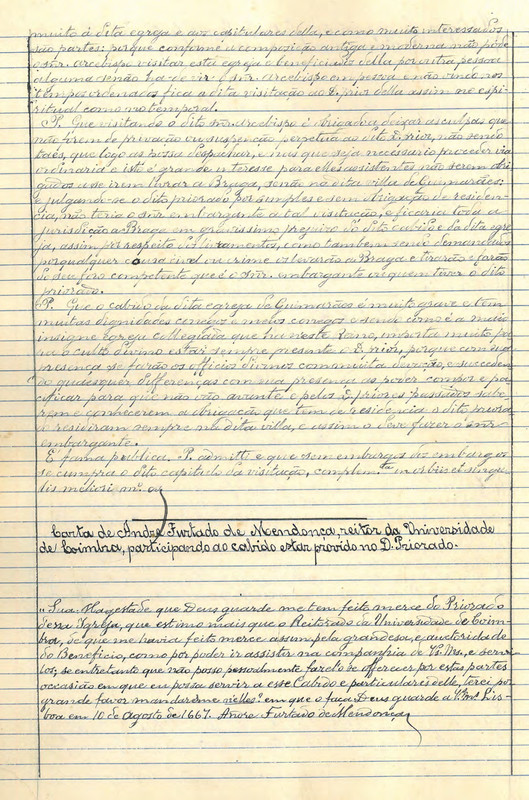 muito á dita egreja e aos capitulares della, e como muito interessados
são partes: porque conforme a composição antiga e moderna não póde
o snr. arcebispo visitar esta egreja e beneficiados della por outra pessoa
alguma senão ha de vir o snr. arcebispo em pessoa e não vindo nos
tempos ordenados fica a dita visitação ao D. prior della assim no espi-
ritual como no temporal.
P. Que visitando o dito snr. arcebispo é obrigado a deixar as culpas que
não forem de privação ou suspenção perpetua ao dito D. Prior, não sendo
taes, que logo as possa despachar, e nas que seja necessario proceder via
ordinaria e isto é grande interesse para elles assistentes não serem obri-
gados a se irem livrar a Braga, senão na dita villa de Guimarães;
e julgando-se o dito priorado por simples e sem obrigação de residen-
cia, não teria o snr embargante a tal visitação, e ficaria toda a
jurisdicção a Braga em gravissimo prejuizo do dito cabido e da dita egre-
ja, assim por respeito dos livramentos, como tambem sendo demandados
por qualquer cousa civel ou crime os levarão a Braga e tirarão e farão
de seu foro competente que é o snr. embargante ou quem tiver o dito
priorado.
P. Que o cabido da dita egreja de Guimarães é muito grave e tem
muitas dignidades conegos e meios conegos e sendo como é a mais
insigne Egreja collegiada que ha neste reino, importa muito pa-
ra o culto divino estar sempre presente o D. Prior, porque com sua
presença se farão os officios divinos com muita devoção, e succeden-
do quaesquer differenças com sua presença as poder compor e pa-
cificar para que não vão avante e pelos D. priores passados sabe-
rem e conhecerem a obrigação que tem de residencia o dito priora-
do residiram sempre na dita villa, e assim o deve fazer o snr
embargante.
É fama publica. P. admitti e que sem embargo dos embargos
se cumpra o dito capitulo da visitação, complem.to in orbios et singu-
lis meliori m.º os
Carta de André Furtado de Mendonça, reitor da Universidade
de Coimbra, participando ao cabido estar provido no D. Priorado.
"Sua Magestade que Deus guarde me tem feito merce do Priorado
dessa Igreja, que estimo mais que o Reitorado da Universidade de Coim-
bra, de que me havia feito merce assim pela grandesa, e autoridade
do Beneficio, como por poder ir assistir na companhia de V. Mcs, e servi-
los, se entretanto que não posso pessoalmente fazelo se offerecer por estas partes
occasião em que eu possa servir a esse Cabido e particulares delle, terei por
grande favor mandareme nelles em que o faça Deus guarde a V. Mcs Lis-
boa em 10 de Agosto de 1667. Andre Furtado de Mendonça